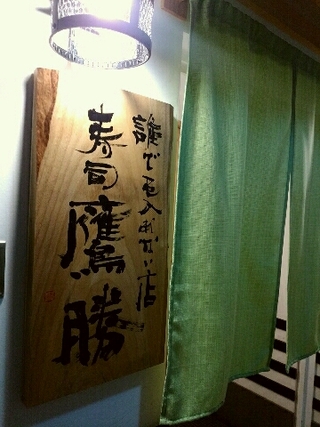 誰でも入れない店
寿司
鷹勝